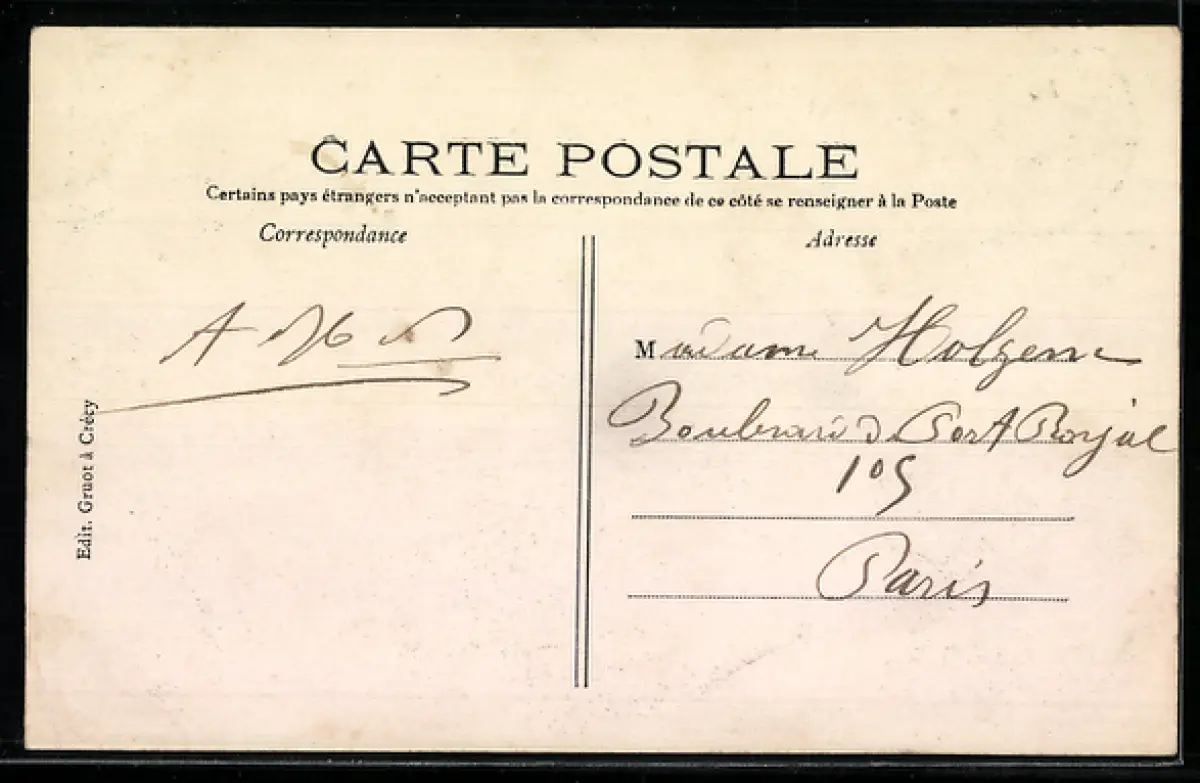 CARTE POSTALE
Certains pays étrangers n'acceptant pas la correspondance de ce côté se renseigner à la Poste
Correspondance
Adresse
Edit. Gruot à Crécy
Madame
Boulevard de Port Royal
105
Paris